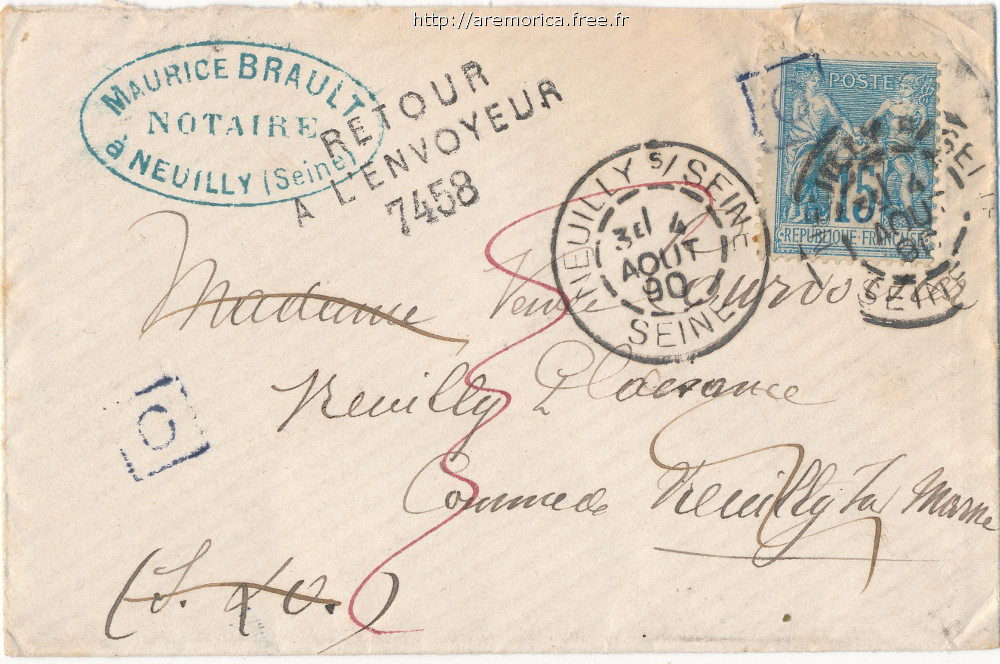 http://aremorica.free.fr
MAURICE BRAULT
NOTAIRE
à NEUILLY (Seine)
RETOUR
A L'ENVOYEUR
7458
NEUILLY S/ SEINE
3E 4
AOUT
90
SEINE
POSTE
15
REPUBLIQUE FRANÇAISE
4
AOU
SEINE
Madame Veuve
Neuilly Plaisance
Commune de Neuilly sur Marne
(S. & O.)
O